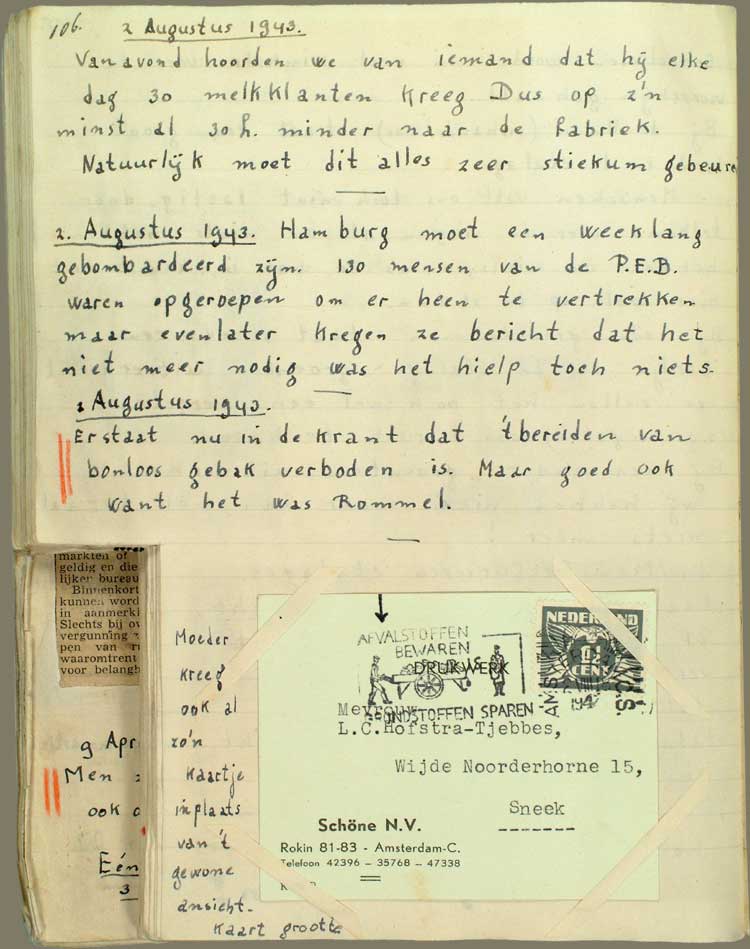 106.
2 Augustus 1943.
Vanavond hoorden we van iemand dat hij elke
dag 30 melkklanten kreeg Dus op z'n
minst al 30 h. minder naar de fabriek.
Natuurlijk moet dit alles zeer stiekum gebeure
2. Augustus 1943. Hamburg moet een week lang
gebombardeerd zijn. 130 mensen van de P.E.B.
waren opgeroepen om er heen te vertrekken
maar evenlater kregen ze bericht dat het
niet meer nodig was het hielp toch niets.
2 Augustus 1943.
Er staat nu in de krant dat 't bereiden van
bonloos gebak verboden is. Maar goed ook
want het was Rommel.
markten of
geldig en die
lijker bureau
Binnenkort
kunnen word
in aanmerki
Slechts bij ov
vergunning
pen van
waaromtrent
voor belangh
9 Apr
Men
ook
Eén
3
Moeder
kreeg
ook al
zo'n
kaartje
inplaats
van 't
gewone
ansicht-
kaart grootte
AFVALSTOFFEN
BEWAREN
GRONDSTOFFEN SPAREN
DRUKWERK
NEDERLAND
1½
CENT
AMST
C.S.
Mevrouw
L.C.Hofstra-Tjebbes,
Wijde Noorderhorne 15,
Sneek
Schöne N.V.
Rokin 81-83 - Amsterdam-C.
Telefoon 42396 – 35768 – 47338